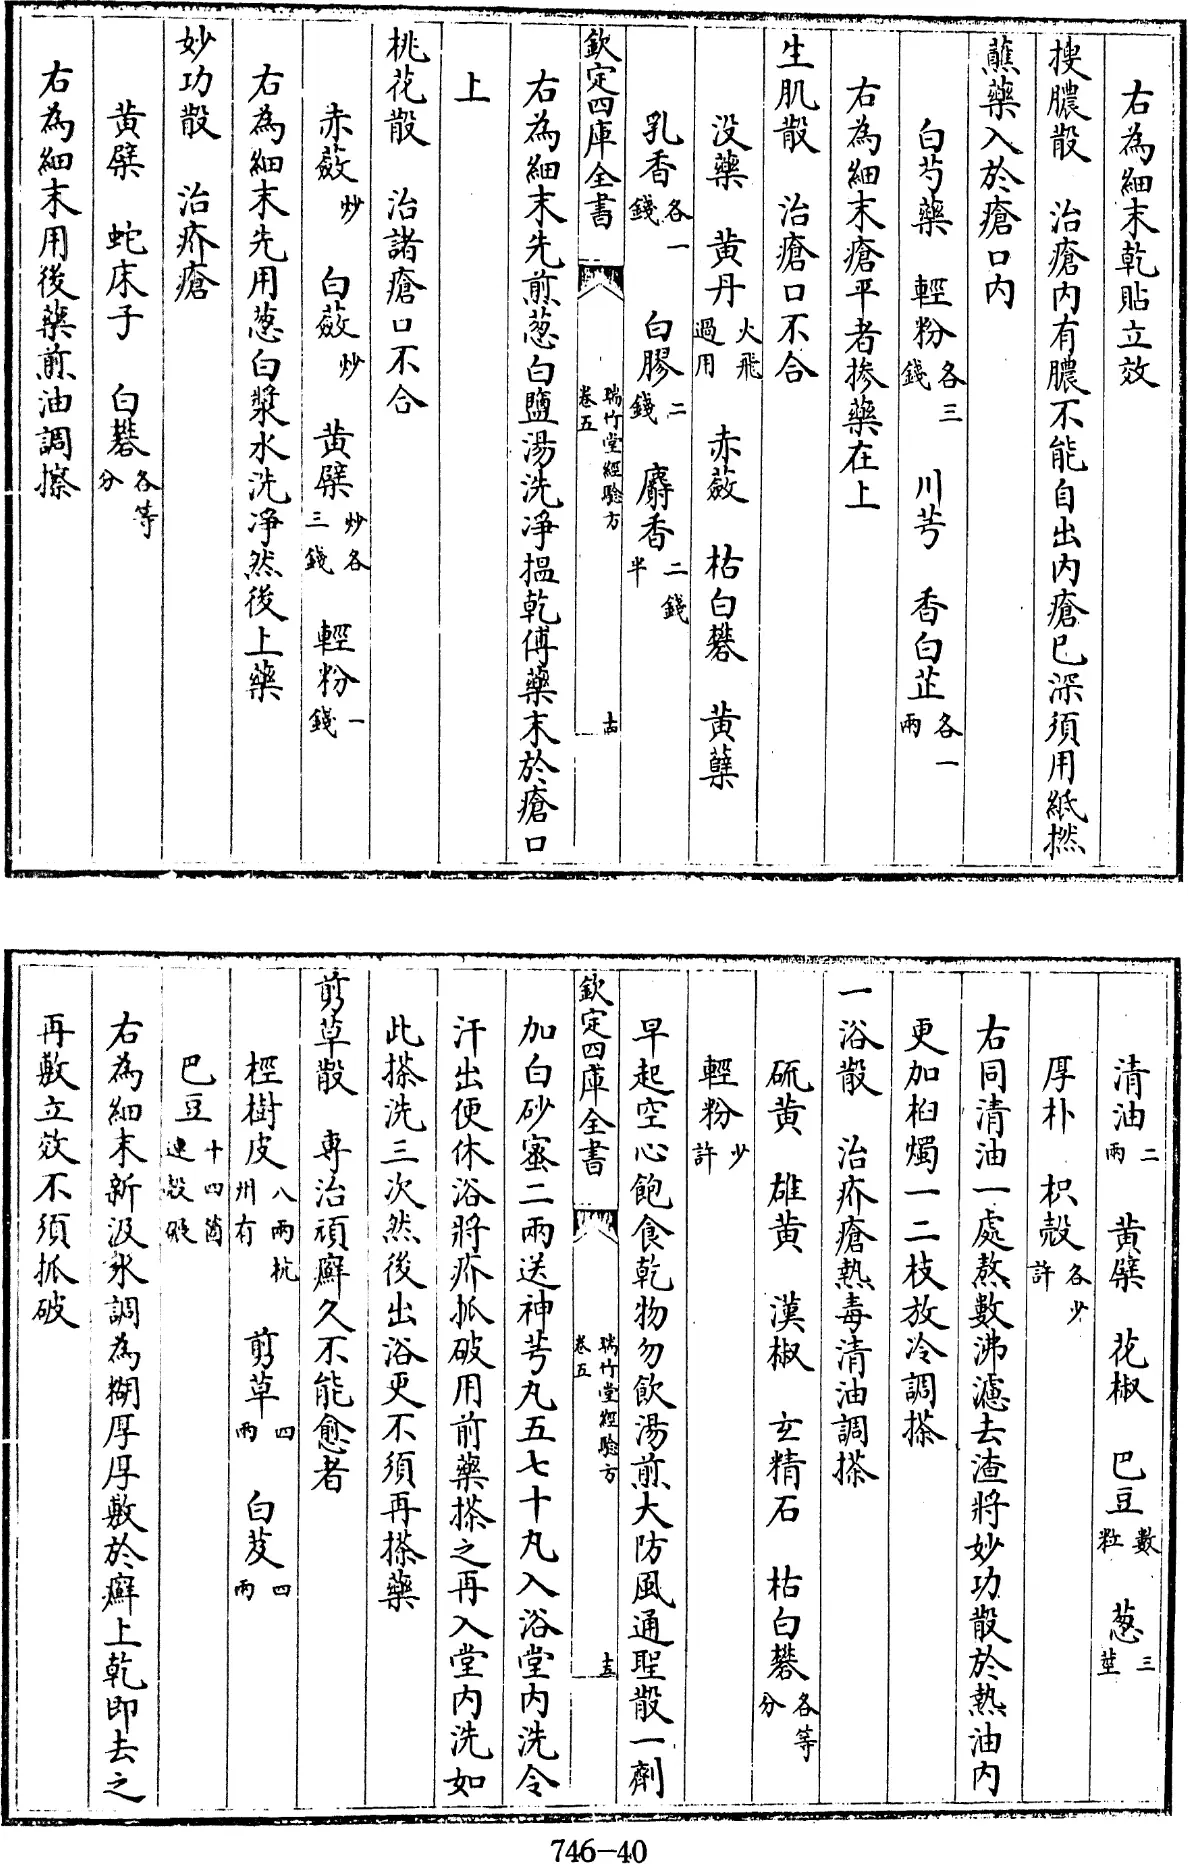 右為細末乾貼立效
搜膿散　治瘡内有膿不能自出内瘡已深須用紙撚
蘸藥入於瘡口内
白芍藥　輕粉各三錢　川芎　香白芷各一兩
右為細末瘡平者摻藥在上
生肌散　治瘡口不合
没藥　黄丹火飛過用　赤蘞　枯白礬　黄蘗
乳香各一錢　白膠二錢　麝香二錢半
欽定四庫全書　瑞竹堂經驗方卷五　十四
右為細末先煎葱白鹽湯洗净揾乾傅藥末於瘡口
上
桃花散　治諸瘡口不合
赤蘞炒　白蘞炒　黄蘗炒各三錢　輕粉一錢
右為細末先用葱白漿水洗净然後上藥
妙功散　治疥瘡
黄蘗　蛇床子　白礬各等分
右為細末用後藥煎油調搽
清油二兩　黄蘗　花椒　巴豆數粒　葱三莖
厚朴　枳殻各少許
右同清油一處熬數沸濾去渣將妙功散於熱油内
更加桕燭一二枝放冷調搽
一浴散　治疥瘡熱毒清油調搽
硫黄　雄黄　漢椒　玄精石　枯白礬各等分
輕粉少許
早起空心飽食乾物勿飲湯煎大防風通聖散一劑
欽定四庫全書　瑞竹堂經驗方卷五　十五
加白砂蜜二兩送神芎丸五七十丸入浴堂内洗令
汗出便休浴將疥抓破用前藥搽之再入堂内洗如
此搽洗三次然後出浴更不須再搽藥
剪草散　專治頑癬久不能愈者
桱樹皮八兩杭州有　剪草四兩　白芨四兩
巴豆十四箇連殻碾
右為細末新汲水調為糊厚厚敷於癬上乾即去之
再敷立效不須抓破
746-40